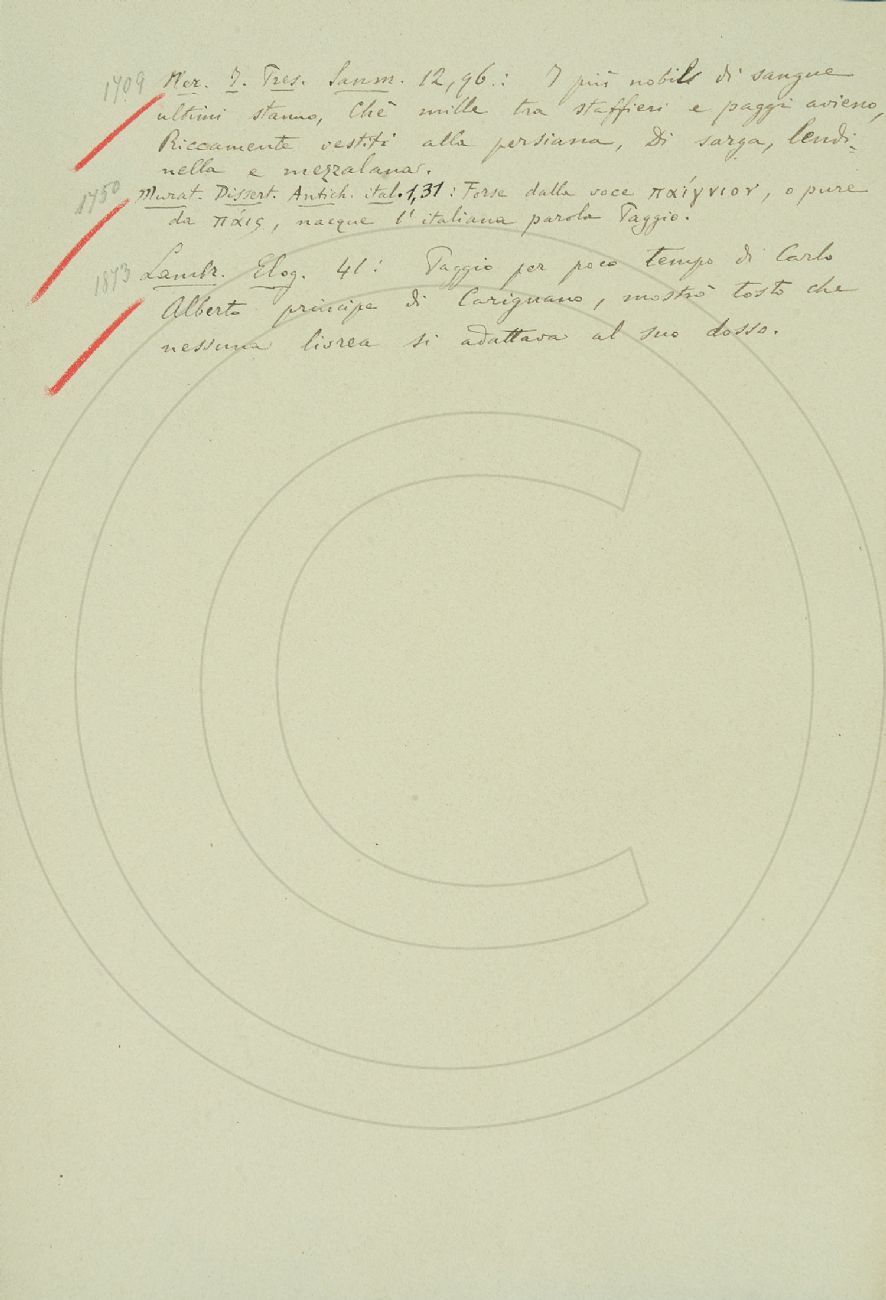 1709 Ner. I. Pres. Sanm. 12, 96.: I più nobili di sangue
ultimi stanno, Chè mille tra staffieri e paggi avieno,
Riccamente vestiti alla persiana, Di sarga, lendi-
nella e mezzalana.
1750 Murat. Dissert. Antich. ital. 1, 31: Forse dalla voce παίγνιον, o pure
da πάις, nacque l'italiana parola Paggio.
1873 Lambr. Elog. 41: Paggio per poco tempo di Carlo
Alberto principe di Carignano, mostrò tosto che
nessuna livrea si adattava al suo dosso.